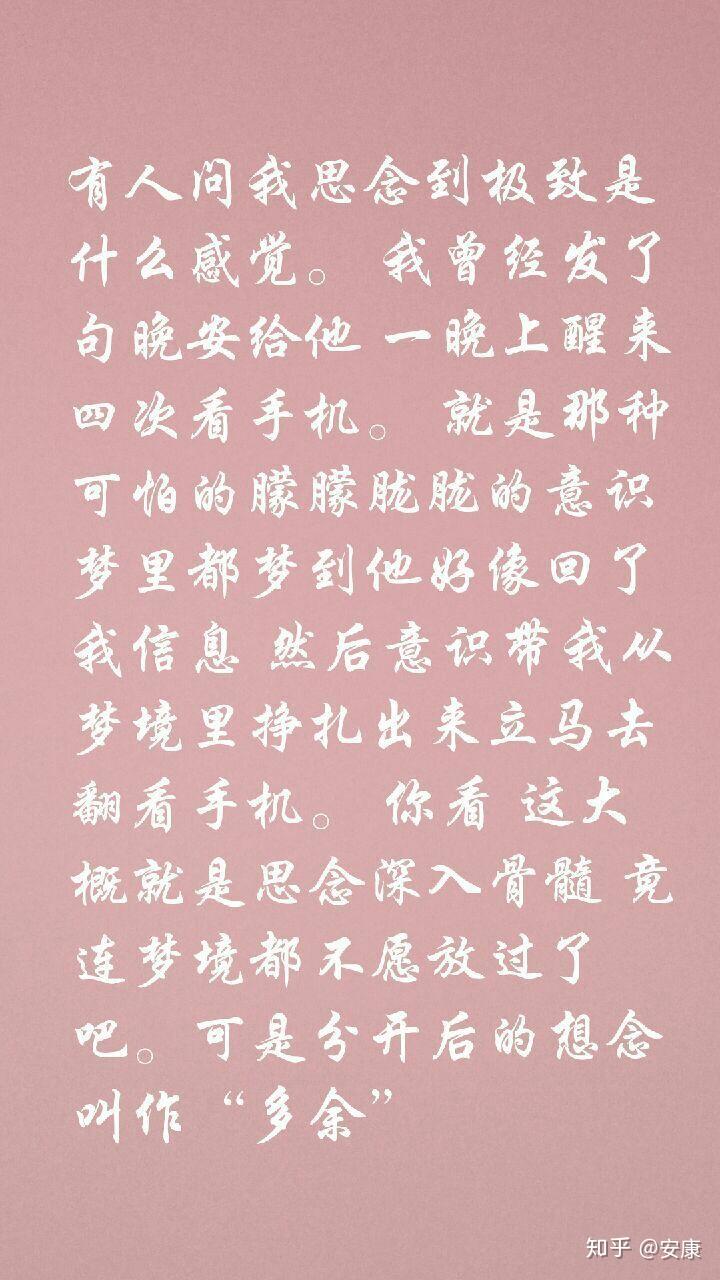 有人问我思念到极致是
什么感觉。 我曾经发了
句晚安给他 一晚上醒来
四次看手机。 就是那种
可怕的朦朦胧胧的意识
梦里都梦到他好像回了
我信息 然后意识带我从
梦境里挣扎出来立马去
翻看手机。 你看 这大
概就是思念深入骨髓 竟
连梦境都不愿放过了
吧。可是分开后的想念
叫作“多余”
知乎 @安康